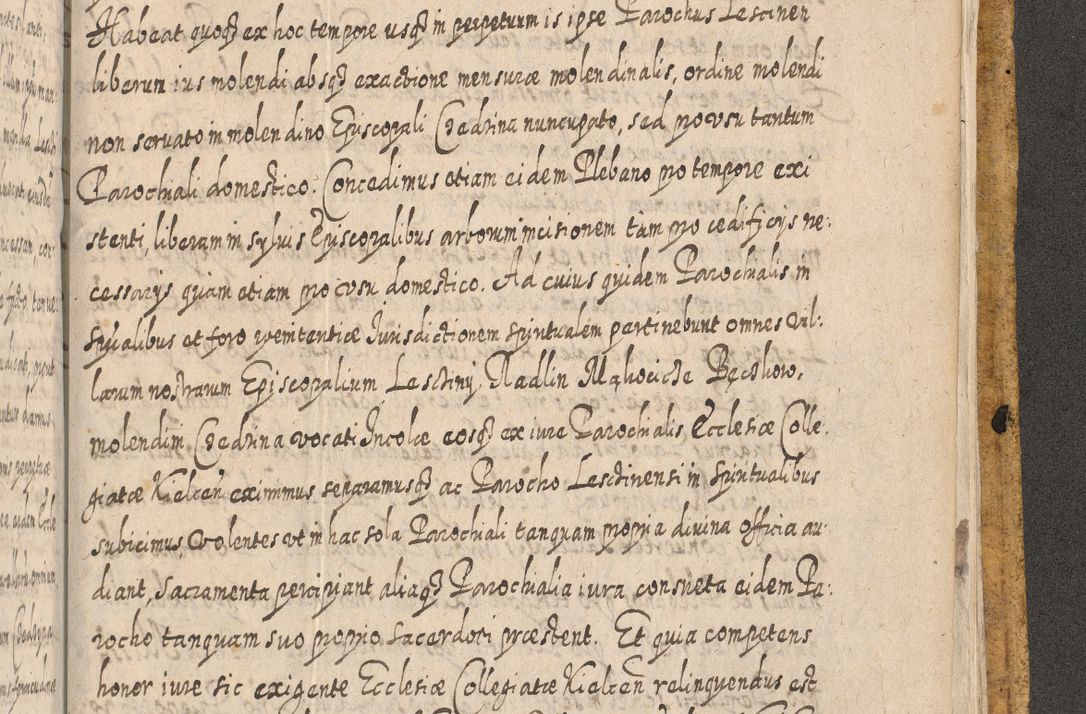 Habeat quoq3 ex hoc tempore usq3 in perpetuum is ipse Parochus Lescinen
liberum ius molendi absq3 exactione mensuræ molendinalis, ordine molendi
non servato in molendino Episcopali Chedrina nuncupato, sed pro usu tantum
Parochiali domestico. Concedimus etiam eidem Plebano pro tempore exi
stenti, liberam in sylvis Episcopalibus arborum incisionem tam pro ædificijs ne:
cessarijs quam etiam pro usu domestico. Ad cuius quidem Parochialis in
spũalibus et foro pœnitentiæ Jurisdictionem spiritualem pertinebunt omnes Vil:
larum nostrarum Episcopalium Lesctiny, Nadlin Mąhocicze Bęczkow,
molendini Chedrina vocati Incolæ eosq3 ex iure Parochialis Ecclesiæ Colle:
giatæ Kielceñ eximimus separamusq3 ac Parocho Lesctinensi in spiritualibus
subicimus, Volentes ut in hac sola Parochiali tanquam propria divina officia au:
diant, Sacramenta percipiant aliaq3 Parochialia iura consueta eidem Pa:
rocho tanquam suo proprio sacerdoti præstent. Et quia competens
honor iure sic exigente Ecclesiæ Collegiatæ Kielceñ relinquendus est